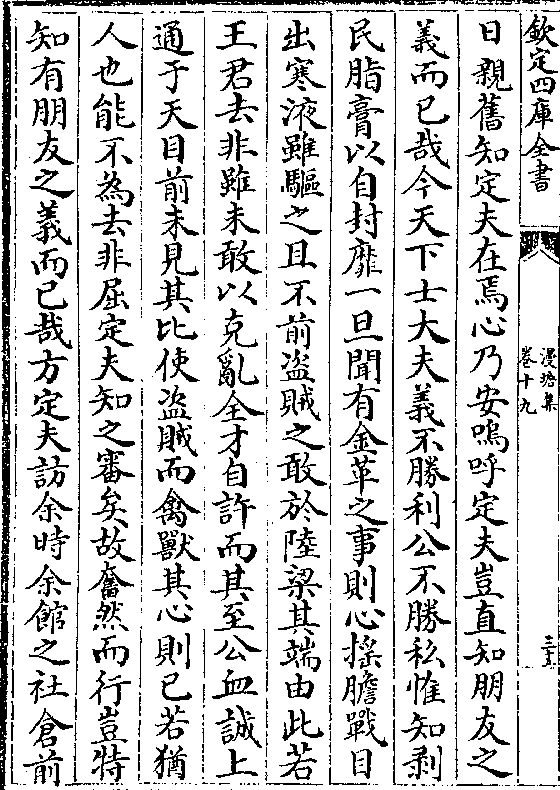 欽定四庫全書
漫塘集
卷十九
日親舊知定夫在焉心乃安嗚呼定夫豈直知朋友之
義而已哉今天下士大夫義不勝利公不勝私惟知剥
民脂膏以自封靡一旦聞有金革之事則心揺膽戰目
出寒液雖驅之且不前盗賊之敢於陸梁其端由此若
王君去非雖未敢以克亂全才自許而其至公血誠上
通于天目前未見其比使盗賊而禽獸其心則已若猶
人也能不為去非屈定夫知之審矣故奮然而行豈特
知有朋友之義而已哉方定夫訪余時余館之社倉前